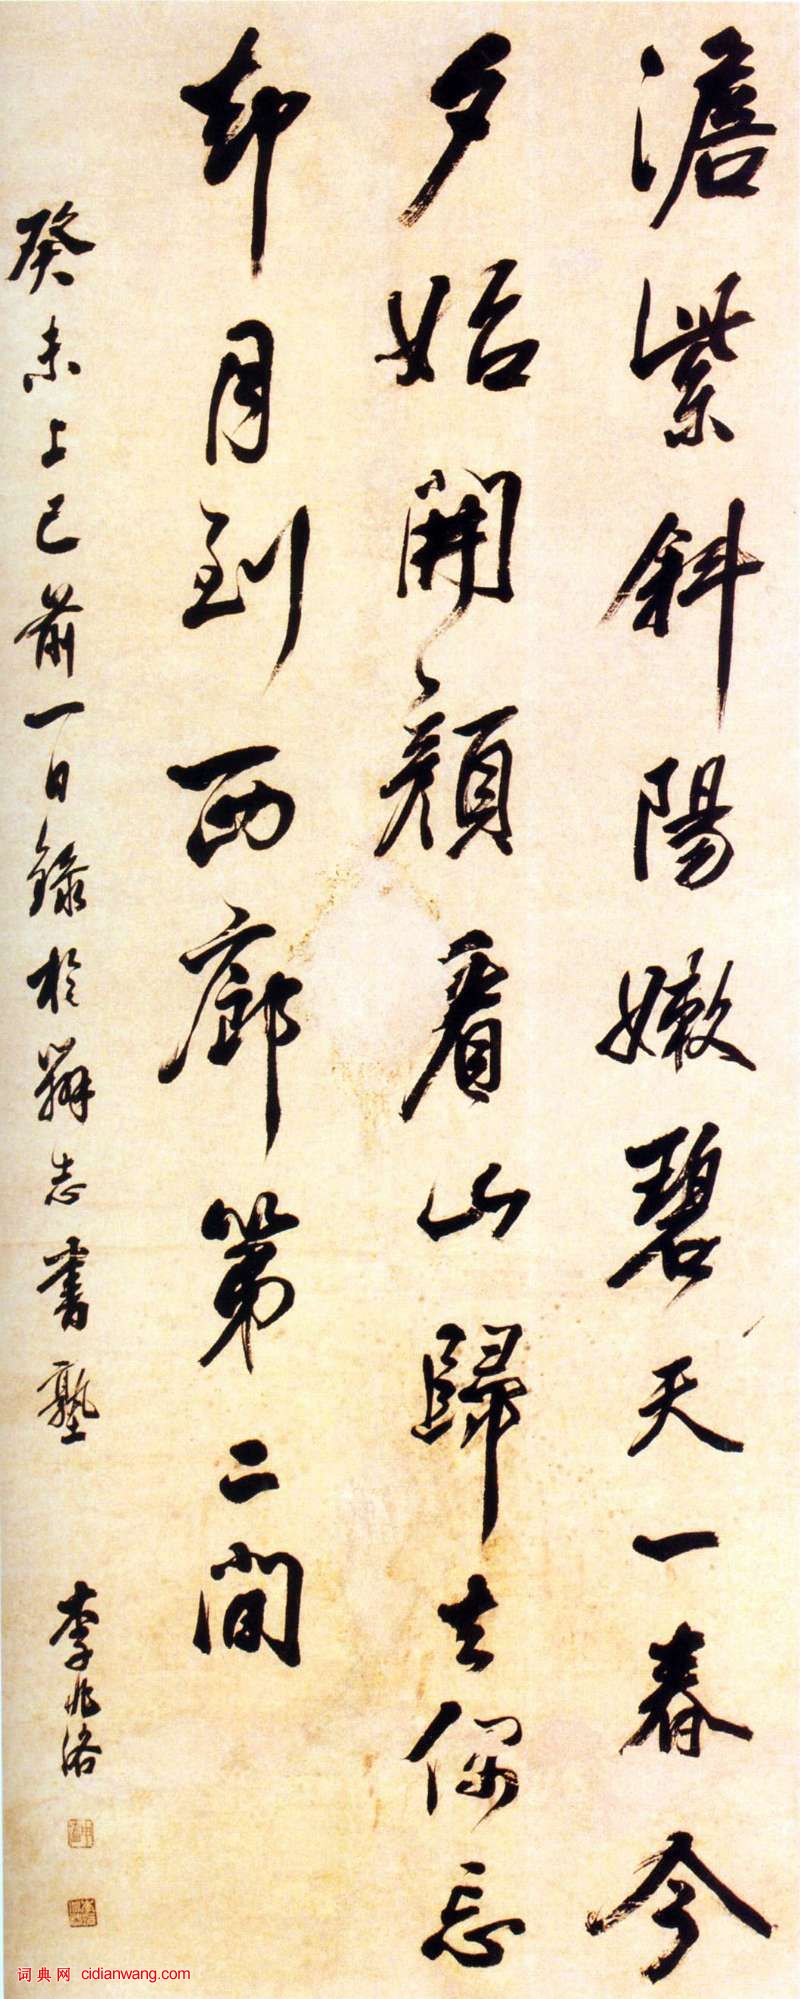 澹紫斜陽嫩碧天一春今
夕始開顏看山歸去偶忘
却月到西廊第二間
癸未上巳前一日錄於辨志書塾
李兆洛
词典网 cidianwang.com